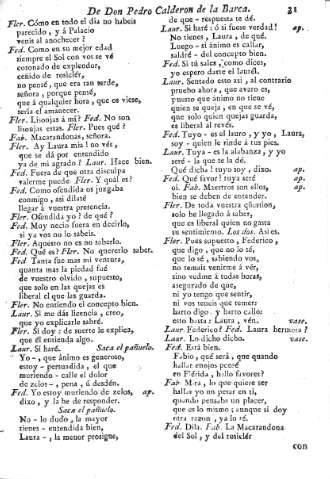 De Don Pedro Calderon de la Barca. 31
Fler. Cómo en todo el dia no habeis
parecido, y á Palacio
venis al anochecer?
Fed. Como en su mejor edad
siempre el Sol con vos se vé
coronado de esplendor,
ceñido de rosiclér,
no pensé, que era tan tarde,
señora, porque pensé,
que á qualquier hora, que os viese,
sería el amanecer.
Fler. Lisonjas á mí? Fed. No son
lisonjas estas. Fler. Pues qué?
Fab. Macarandonas, señora.
Fler. Ay Laura mia! no vés,
que se dá por entendido
ya de mi agrado? Laur. Hace bien.
Fed. Fuera de que otra disculpa
valerme puede Fler. Y quál es?
Fed. Como ofendida os juzgaba
conmigo, así dilaté
llegar á vuestra presencia.
Fler. Ofendida yo? de qué?
Fed. Muy necio fuera en decirlo,
si ya vos no lo sabeis.
Fler. Aquesto no es no saberlo.
Fed. Qué es? Fler. No quererlo saber.
Fed Tanta fue mas mi ventura,
quanta mas la piedad fué
de vuestro olvido, supuesto,
que solo en las quejas es
liberal el que las guarda.
Fler. No entiendo el concepto bien.
Laur. Si me dás licencia, creo,
que yo explicarle sabré.
Fler. Sí doy: de suerte le explica,
que él entienda algo.
Laur. Sí haré. Saca el pañuelo.
Yo-, que ánimo es generoso,
estoy - persuadida, el que
muriendo - calle el dolor
de zelos-, pena, ú desdén.
Fed. Yo estoy muriendo de zelos, ap.
dixo, y la he de responder.
Saca el pañuelo.
No - lo dudo, la mayor
tienes - entendida bien,
Laura -, la menor prosigue,
de que - respuesta te dé.
Laur. Si haré: ó si fuese verdad! ap.
No tienes, Laura, de qué.
Luego - si ánimo es callar,
saldré - del concepto bien.
Fed. Si tú sales, como dices,
yo espero darte el laurél.
Laur. Sentado esto así, al contrario
pruebo ahora, que avaro es,
puesto que ánimo no tiene
quien se queja, en que se vé,
que solo quien quejas guarda,
es liberal al revés.
Fed. Tuyo - es el lauro, y yo, Laura,
soy - quien le rinde á tus pies.
Laur. Tuya - es la alabanza, y yo
seré - la que te la dé.
Qué dicha! tuyo soy, dixo. ap.
Fed. Qué favor! tuya seré ap.
oí. Fab. Maestros son ellos, ap.
bien se deben de entender.
Fler. De toda vuestra qüestion,
solo he llegado á saber,
que es liberal quien no gasta
su sentimiento. Los dos. Así es.
Fler. Pues supuesto, Federico,
que digo, que no lo sé,
que lo sé, sabiendo vos,
no temais venirme á vér,
sino vedme á todas horas,
asegurado de que,
ni yo tengo que sentir,
ni vos teneis que temer:
harto digo: y harto callo:
esto basta: Laura, vén. vase.
Laur. Federico? Fed. Laura hermosa?
Laur. Lo dicho dicho. vase.
Fed. Está bien.
Fabio, qué será, que quando
hallar enojos pensé
en Flérida, hallo favores?
Fab. Mira, lo que quiere ser
hallar yo un pesar en tí,
quando pensaba un placer,
que es lo mismo; aunque si doy
otra razon, ya lo sé.
Fed. Dila. Fab. La Macarandona
del Sol, y del rosiclér
con